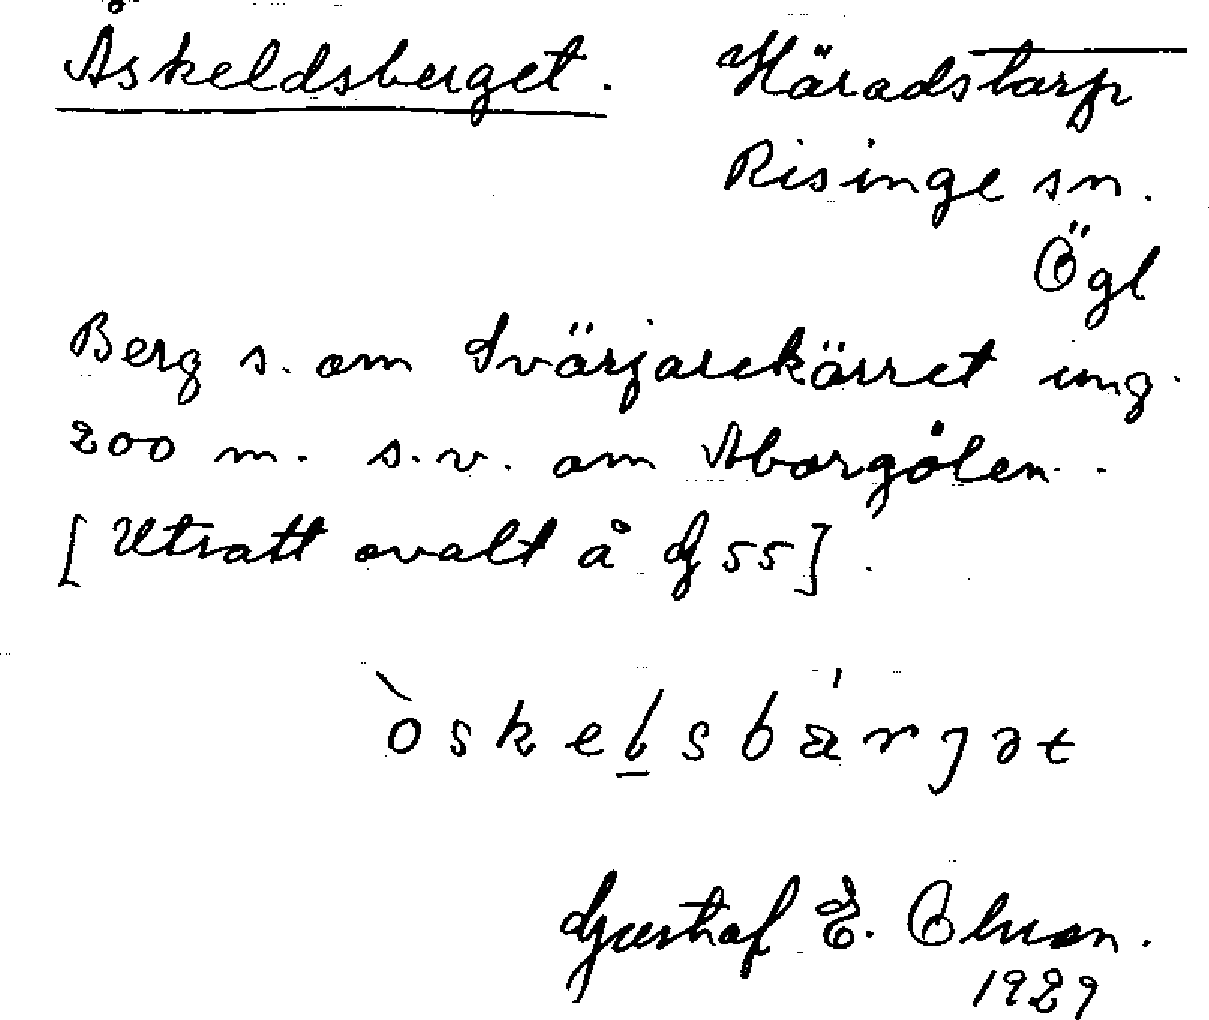 Åskeldsberget. Häradstorp
Risinge sn.
Ögl
Berg s. om Svärjarekärret ung.
200 m. s.v. om Aborgölen.
[Utsatt ovalt å G 55].
òskelsbárjət
Gustaf E. Olsson.
1929